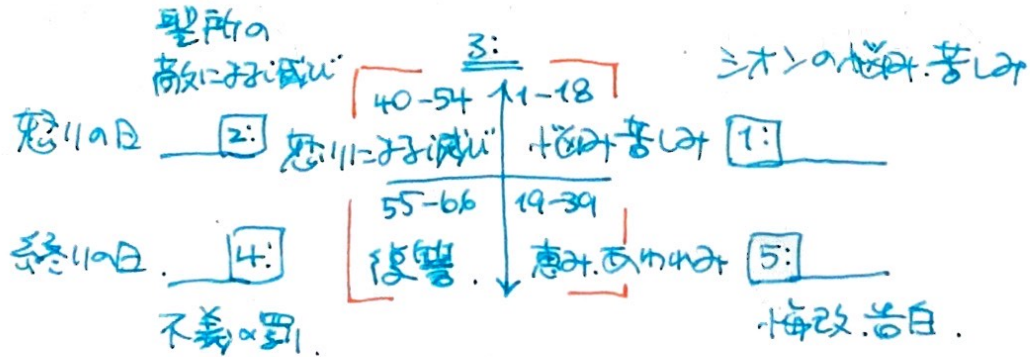 聖所の
敵による滅び
3:
シオンの悩み.苦しみ
40-54 1-18
怒りの日 2: 怒りによる滅び 悩み苦しみ 1:
55-66 19-39
終りの日. 4: 復讐. 恵み.あわれみ 5:
不義の罰.
悔改.告白.